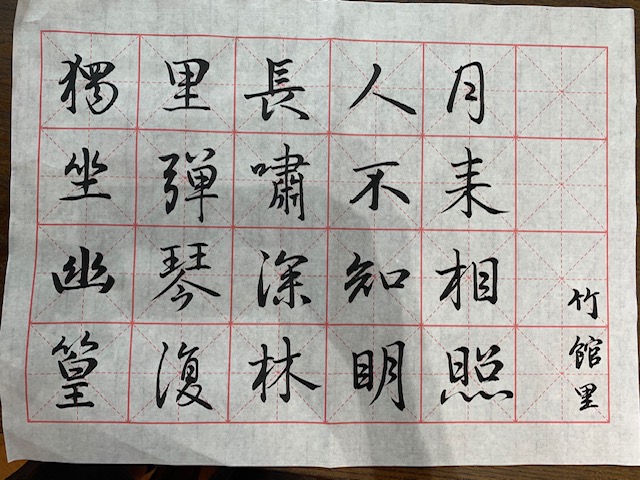 獨坐幽篁
里弾琴復
長嘯深林
人不知明
月来相照
竹館里